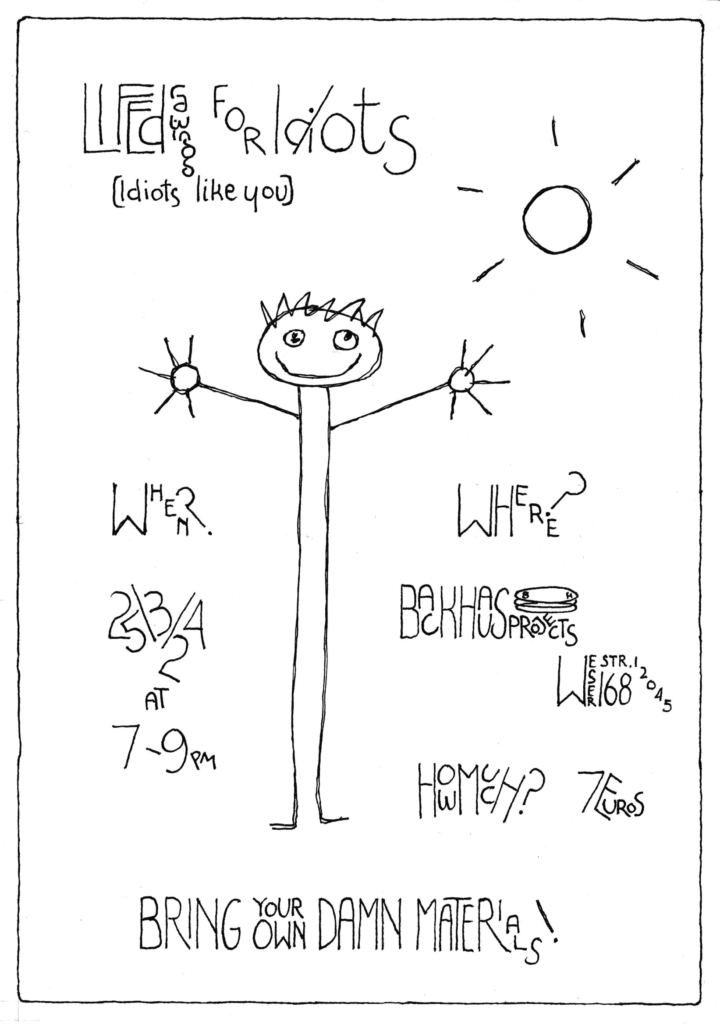 LIFEdrawing FOR Idiots
(Idiots like you)
WHEN?
WHERE?
25\3/24
AT
7-9PM
BACKHAUS PROJECTS
B H
WESERSTR. 168 12045
HOW MUCH? 7 EUROS
BRING YOUR OWN DAMN MATERIALS!